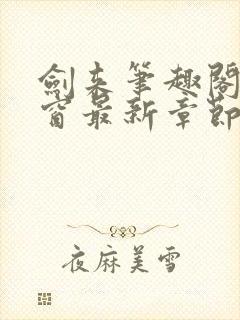 劍来筆趣閣
窗最新章節
夜麻美雪